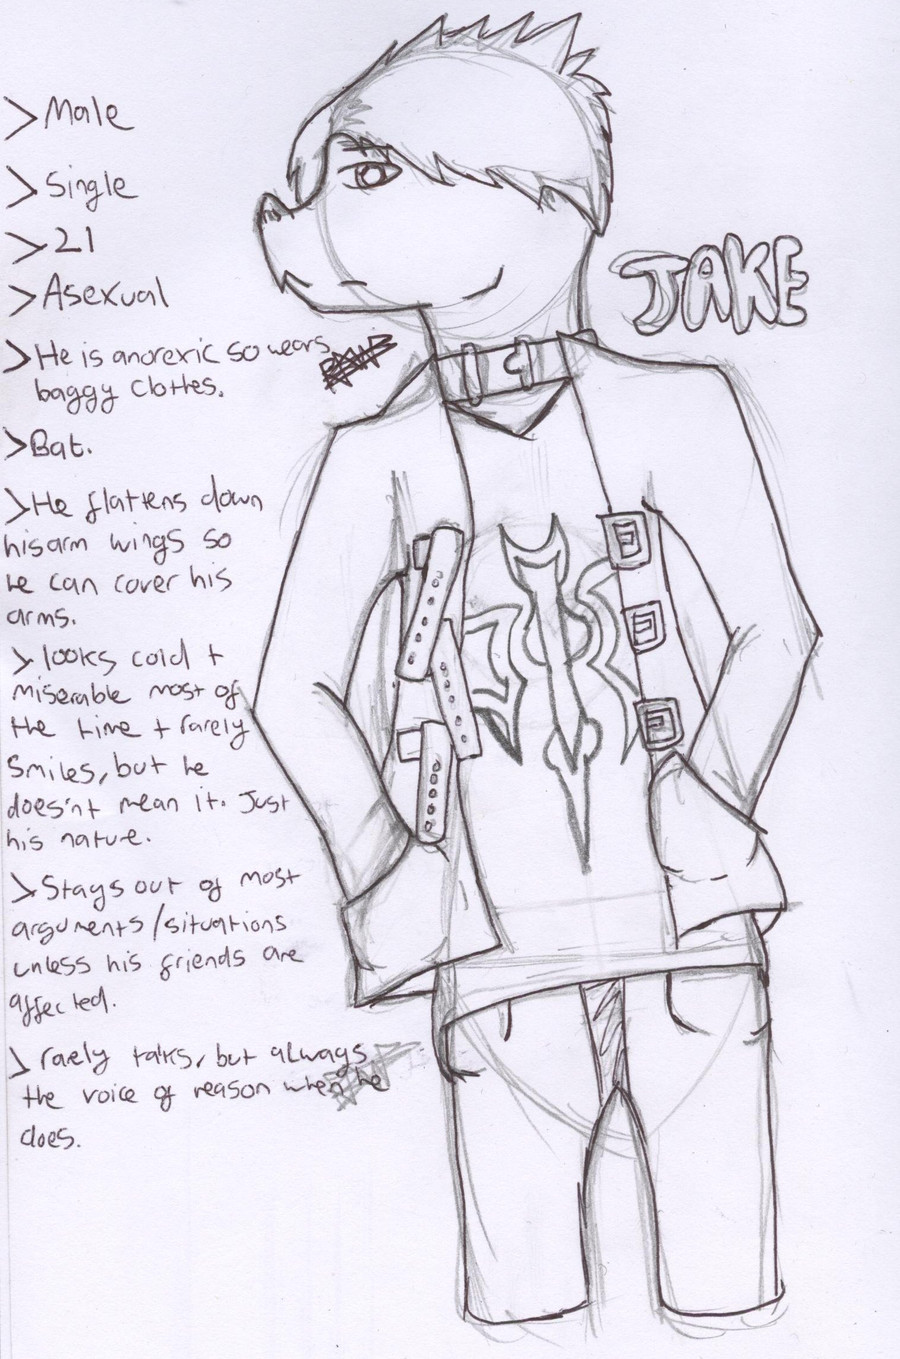 > Male
> Single
> 21
> Asexual
JAKE
> He is anorexic so wears
baggy clothes.
> Bat.
> He flattens down
his arm wings so
he can cover his
arms.
> looks cold +
miserable most of
the time + rarely
smiles, but he
does'nt mean it. Just
his nature.
> Stays out of most
arguments/situations
unless his friends are
affected.
> rarely talks, but always
the voice of reason when he
does.